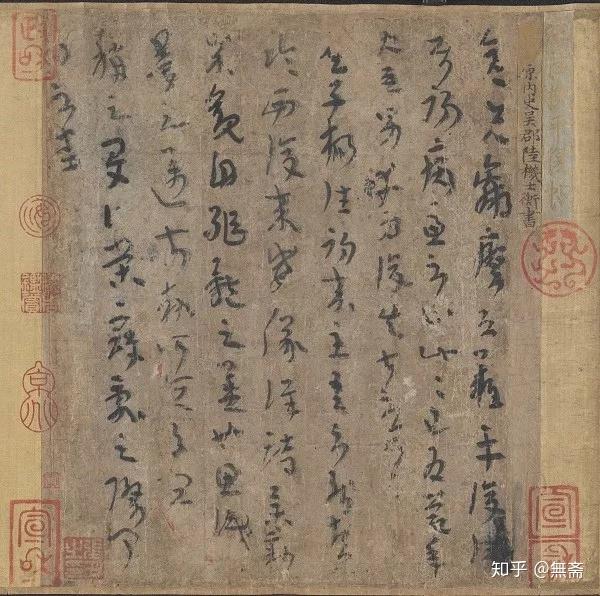 原内史吳郡陸機士衡書
彦先羸瘵恐難平復往
屬初病慮不止此此已為慶承
使唯男幸為復失前憂耳
吳子楊往初來主吾不能盡
臨西復來威儀詳跱舉動
成觀自軀體之美也思識
量之邁前執所恒有宜
稱之夏伯榮寇亂之際聞
問不悉
政和
宣和
宣和
知乎 @無斋